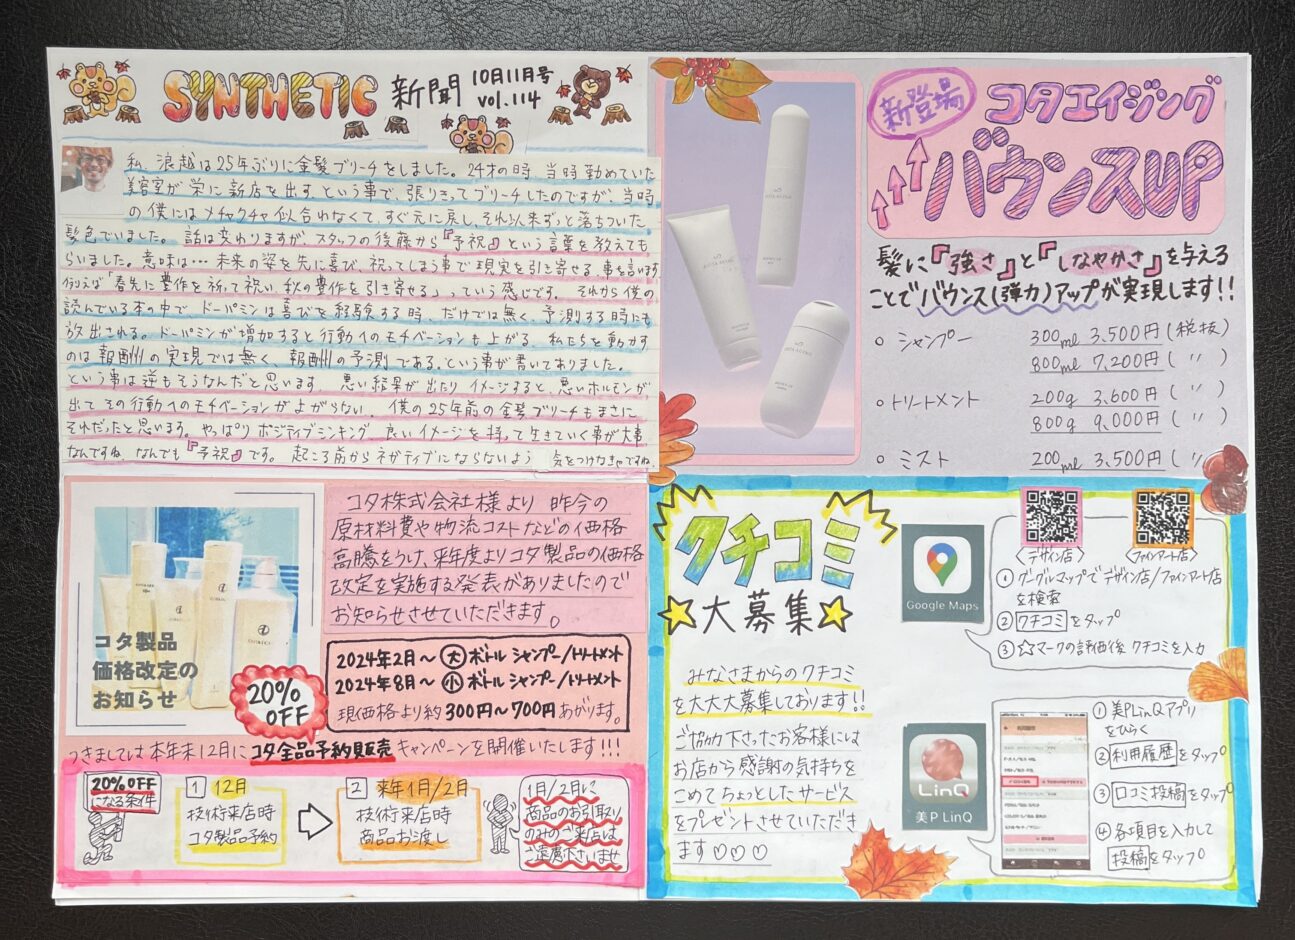 SYNTHETIC 新聞 10月11月号
vol.114
私、浪越は25年ぶりに金髪ブリーチをしました。24才の時、当時勤めていた
美容室が栄に新店を出す、という事で、張りきってブリーチしたのですが、当時
の僕にはメチャクチャ似合れなくて、すぐ元に戻し、それ以来ずっと落ちついた
髪色でいました。話は変わりますが、スタッフの後藤から『予祝』という言葉を教えても
らいました。意味は…未来の姿を先に喜び、祝ってしまう事で現実を引き寄せる、事を言います
行えば「春先に豊作を祈って祝い、秋の豊作を引き寄せる」っていう感じです。それから僕の
読んでいる本の中で、ドーパミンは喜びを経験する時、だけでは無く、予測する時にも
放出される。ドーパミンが増加すると行動へのモチベーションも上がる。私たちを動かす
のは報酬の実現では無く 報酬の予測である。という事が書いてありました。
という事は逆もそうなんだと思います。悪い結果が出たりイメージすると、悪いホルモンが
出て その行動へのモチベーションがよがらない。僕の25年前の金髪ブリーチもまさに
それだったと思います。やっぱりポジティブシンキング、良いイメージを持って生きていく事が大事
なんですね。なんでも『予祝』です。起こる前からネガティブにならないよう 気をつけなきゃですね。
新登場
コタエイジング
バウンスUP
髪に『強さ』と『しなやかさ』を与える
ことでバウンス(弾力)アップが実現します!!
シャンプー 300ml 3,500円(税抜)
800ml 7,200円( 〃 )
トリートメント 200g 3,600円( 〃 )
800g 9,000円( 〃 )
ミスト 200ml 3,500円( 〃
コタ製品
価格改定の
お知らせ
コタ株式会社様より 昨今の
原材料費や物流コストなどの価格
高騰をうけ、来年度よりコタ製品の価格
改定を実施する発表がありましたので
お知らせさせていただきます。
2024年2月〜 大ボトル シャンプー/トリートメント
2024年8月〜 小ボトル シャンプー/トリートメント
現価格より約300円〜700円あがります。
20%
OFF
つきましては本年末12月にコタ全品予約販売キャンペーンを開催いたします!!!
20%OFF
になる条件
1 12月
技術来店時
コタ製品予約
2 来年1月/2月
技術来店時
商品お渡し
1月/2月に
商品のお引取り
のみのご来店は
ご遠慮下さいませ
クチコミ
大募集
みなさまからのクチコミ
を大大大募集しております!!
ご協力下さったお客様には
お店から感謝の気持ちを
こめてちょっとしたサービス
をプレゼントさせていただき
ます♡♡♡
Google Maps
〈デザイン店〉 〈ファインアート店〉
① グーグルマップでデザイン店/ファインアート店
を検索
② クチコミをタップ
③ ☆マークの評価後 クチコミを入力
LinQ
美P LinQ
① 美PLinQアプリ
をひらく
② 利用履歴をタップ
③ 口コミ投稿をタップ
④ 各項目を入力して
投稿をタップ